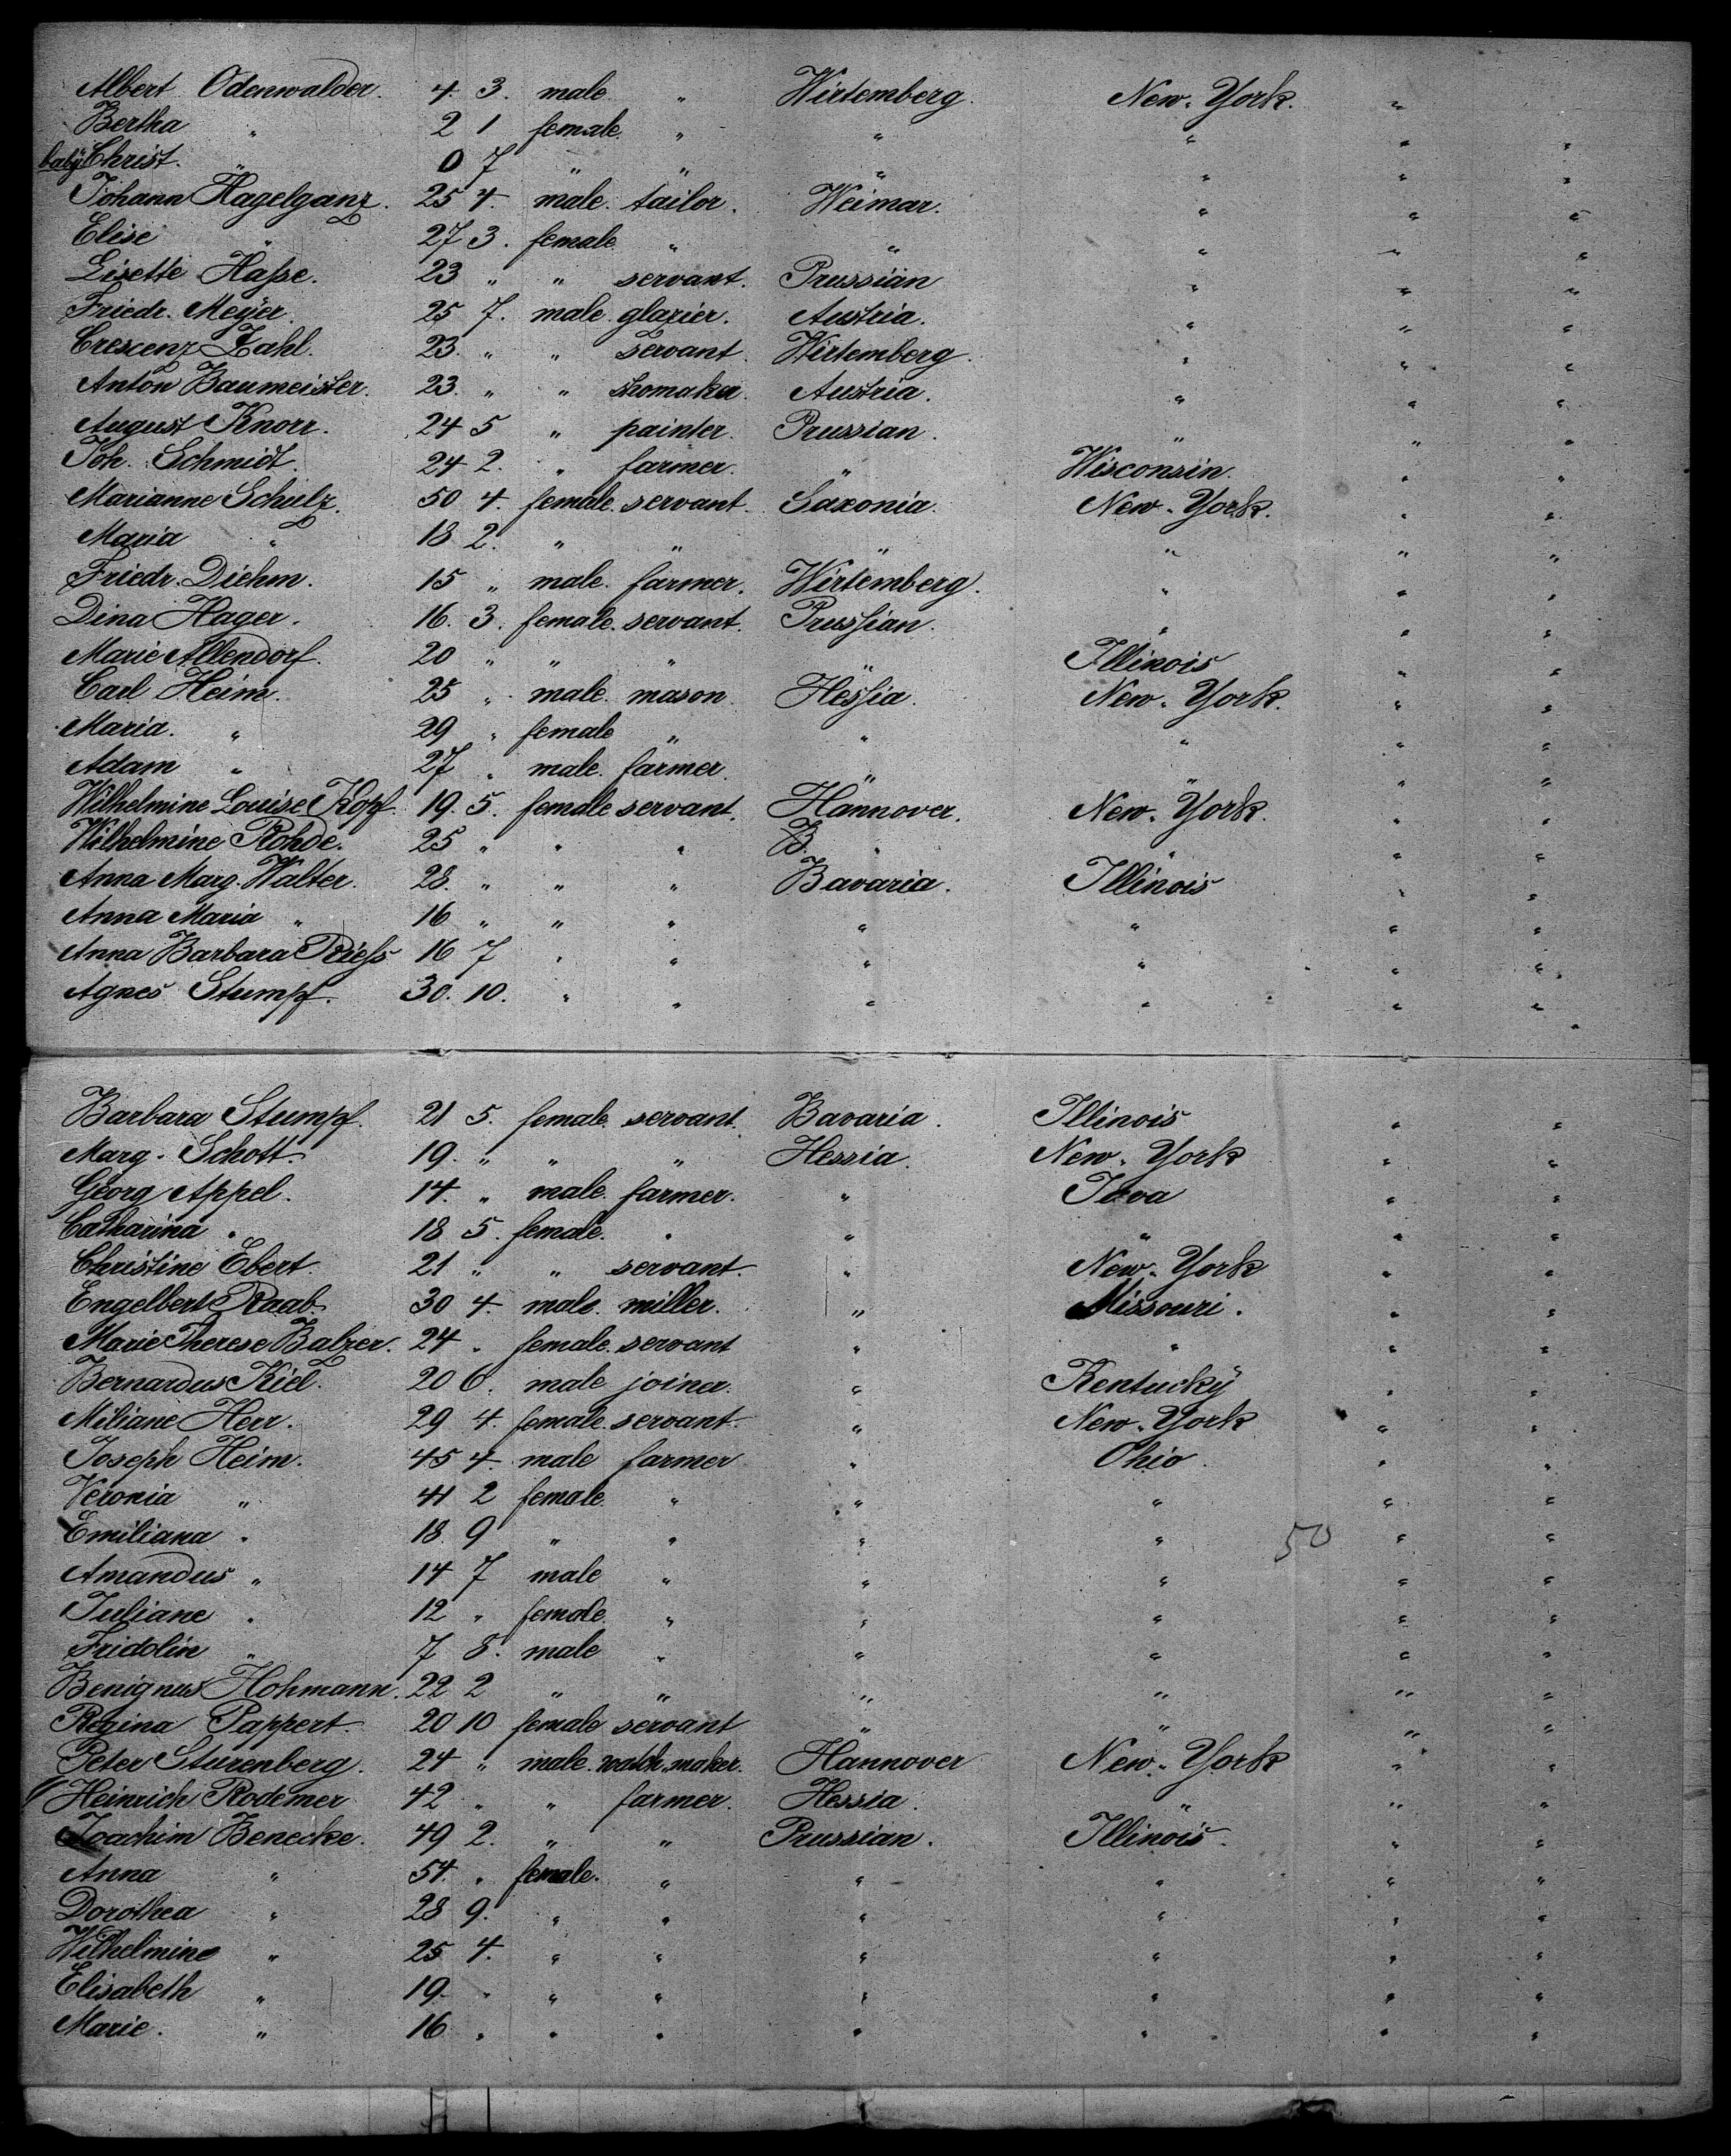 Albert Odenwalder. 4. 3. male. " Wirtemberg. New-York. "
Bertha " 2 1 female. " " " " "
baby Christ. " 0 7 " " " " " "
Johann Hagelganz. 25 4. male. tailor. Weimar. " " "
Elise " 27 3. female " " " " "
Lisette Haſse. 23 " " servant. Prussian " " "
Friedr. Meÿer. 25 7. male. glazier. Austria. " " "
Crescenz Zahl. 23. " " servant. Wirtemberg. " " "
Anton Baumeister. 23. " " shomaker. Austria. " " "
August Knorr. 24 5 " painter. Prussian. " " "
Joh. Schmidt. 24 2. " farmer. " Wisconsin. " "
Marianne Schulz. 50 4. female. servant. Saxonia. New-York. " "
Maria " 18 2. " " " " " "
Friedr. Diehm. 15 " male. farmer. Wirtemberg. " " "
Dina Hager. 16. 3. female. servant. Pruſsian. " " "
Marie Allendorf. 20 " " " " Illinois " "
Carl Heim. 25 " male. mason. Heſsia. New-York. " "
Maria. " 29 " female " " " " "
Adam " 27 " male. farmer. " " " "
Wilhelmine Louise Klopf. 19. 5. female servant. Hannover. New-York. " "
Wilhelmine Rohde. 25 " " " B. " " " "
Anna Marg. Walter. 28. " " " Bavaria. Illinois " "
Anna Maria " 16 " " " " " " "
Anna Barbara Rieſs 16 7 " " " " " "
Agnes Stumpf. 30. 10. " " " " " "
Barbara Stumpf. 21 5. female. servant. Bavaria. Illinois " "
Marg. Schott. 19. " " " Hessia. New-York " "
Georg Appel. 14. " male. farmer. " Iova " "
Catharina " 18 5. female. " " " " "
Christine Ebert. 21 " " servant. " New-York " "
Engelbert Raab. 30 4. male. miller. " Missouri. " "
Marie Therese Balzer. 24 " female. servant " " " "
Bernardus Kiel. 20 6. male joiner. " Kentuckÿ " "
Miliane Herr. 29 4. female. servant. " New-York " "
Joseph Heim. 45 4. male farmer " Ohio. " "
Veronia " 41 2 female. " " " " "
Emiliana " 18. 9 " " " " 50 " "
Amandus " 14 7 male " " " " "
Juliane " 12 " female. " " " " "
Fridolin " 7 8. male " " " " "
Benignus Hohmann. 22 2 " " " " " "
Regina Pappert. 20 10 female servant " " " "
Peter Sturenberg. 24 " male. watch maker. Hannover New-York " "
Heinrich Rodemer 42 " " farmer. Hessia. " " "
Joachim Benecke. 49 2. " " Prussian. Illinois. " "
Anna " 54. " female. " " " " "
Dorothea " 28 9. " " " " " "
Wilhelmine " 25 4. " " " " " "
Elisabeth " 19. " " " " " " "
Marie. " 16 " " " " " " "